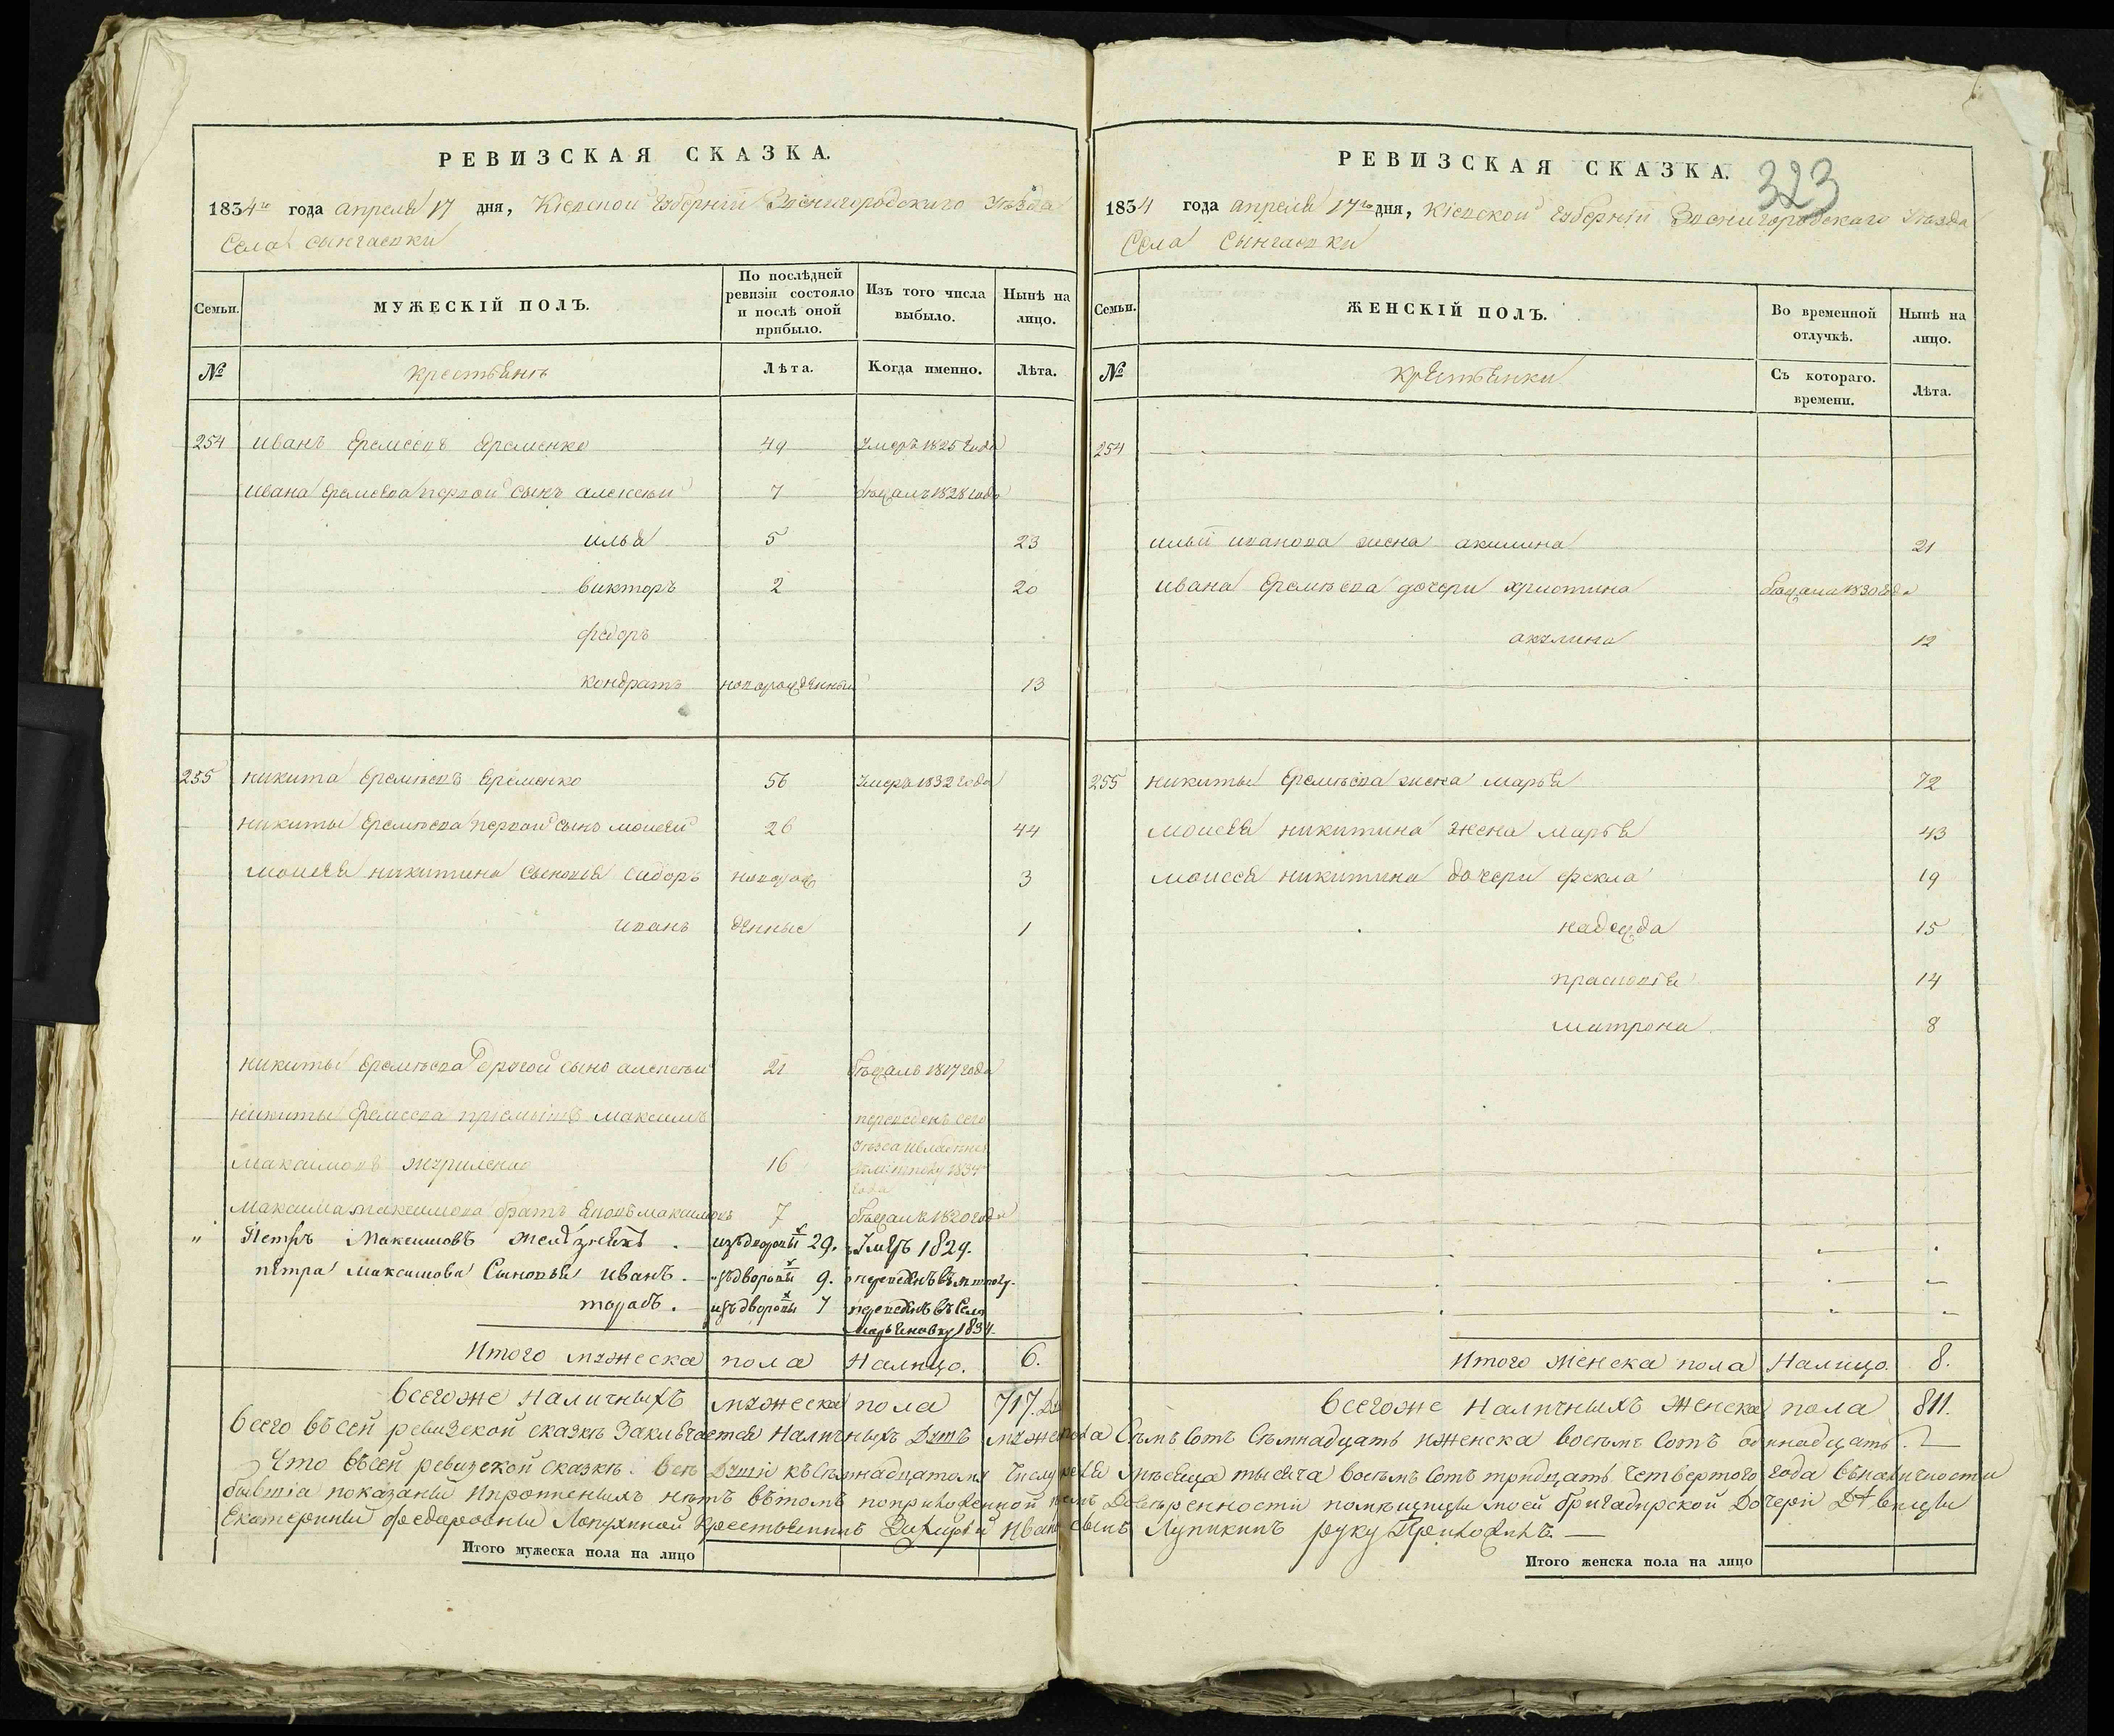 РЕВИЗСКАЯ СКАЗКА.
1834го года апреля 17 дня, Кіевской Губерніи Звенигородского Уѣзда
Села сынгаевки
Семьи. МУЖЕСКІЙ ПОЛЪ. По послѣдней ревизіи состояло и послѣ оной прибыло. Изъ того числа выбыло. Нынѣ на лицо.
№ крестьянъ Лѣта. Когда именно. Лѣта.
254 иванъ Еремеевъ Еременко 49 умеръ 1825 года
ивана Еремеева первой сынъ алексей 7 бѣжалъ 1828 года
илья 5 23
викторъ 2 20
федоръ
кондратъ новорожденный 13
255 никита Еремѣевъ Еременко 56 умеръ 1832 года
никиты Еремѣева первой сынъ моисей 26 44
моисея никитина сыновья сидоръ новорож 3
иванъ денные 1
никиты Еремѣева другой сынъ алексѣй 21 бѣжалъ 1817 года
никиты Еремеева приемышъ максимъ переведенъ сего
максимовъ журиленко 16 1834
года
максима максимова братъ максимовъ 7 бѣжалъ 1820 года
" Петръ Максимовъ Желѣзнякъ . изъ дворовы х 29. умеръ 1829.
петра максимова Сыновья иванъ . изъ дворовы х 9. переведенъ въ
тарасъ . изъ дворовы х 7 переведенъ въ Село
Марьяновку 1834.
Итого мужеска пола Налицо. 6.
всегоже наличныхъ мужеска пола 717.
Итого мужеска пола на лицо
РЕВИЗСКАЯ СКАЗКА.
323
1834 года апреля 17го дня, Кіевской Губерніи Звенигородскаго Уѣзда
Села Сынгаевки
Семьи. ЖЕНСКІЙ ПОЛЪ. Во временной отлучкѣ. Нынѣ на лицо.
№ крестьянки Съ котораго. времени. Лѣта.
254
ильи иванова жена акилина 21
ивана Еремѣева дочери христина бѣжала 1830 года
акулина 12
255 никиты Еремѣева жена марья 72
моисея никитина жена марья 43
моисея никитина дочери фекла 19
надежда 15
прасковья 14
матрона 8
Итого женска пола Налицо. 8.
всегоже наличныхъ женска пола 811.
Всего въ сей ревизской сказкѣ заключается наличныхъ Душъ мужеска Съмъ Сотъ Съмнадцать и женска восемь Сотъ одиннадцать.
Что въ сей ревизской сказкѣ всѣ Души къ семнадцатому числу мѣсяца тысяча восемь Сотъ тридцать четвертого года въ наличности
бывшіа показаны и пропшеныхъ нѣтъ въ томъ по Довѣренности помѣщицы моей бригадирской Дочери Дѣвицы
Екатерины Федоровны Лопухиной Крестьянинъ Захарій Иванъ сынъ Лупикинъ руку Приложилъ.
Итого женска пола на лицо